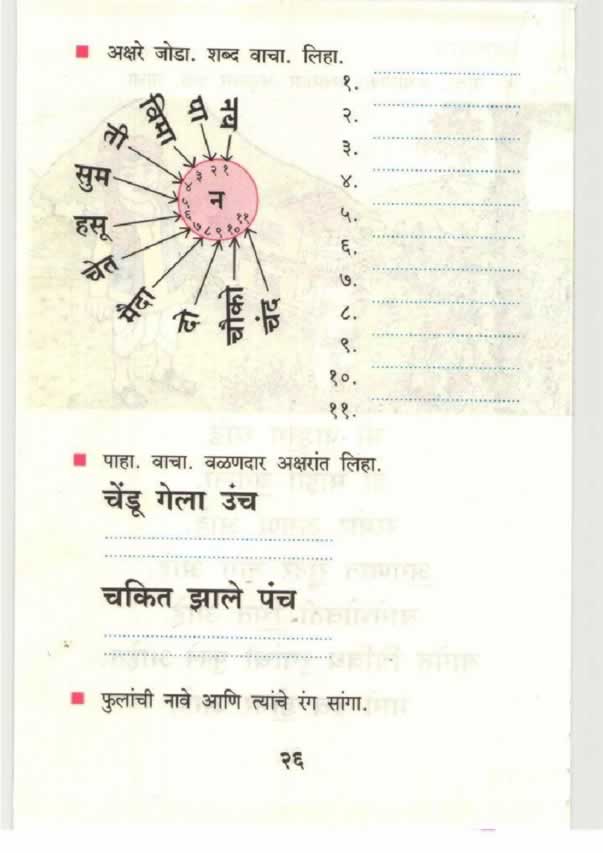 अक्षरे जोडा. शब्द वाचा. लिहा.
नय
पा
विमा
ती
सुम
हसू
चेत
मैदा
दो
चौको
चंद
१ २ ३ ४ ५ ६ ७ ८ ९ १० ११
न
१.
२.
३.
४.
५.
६.
७.
८.
९.
१०.
११.
पाहा. वाचा. वळणदार अक्षरांत लिहा.
चेंडू गेला उंच
चकित झाले पंच
फुलांची नावे आणि त्यांचे रंग सांगा.
२६